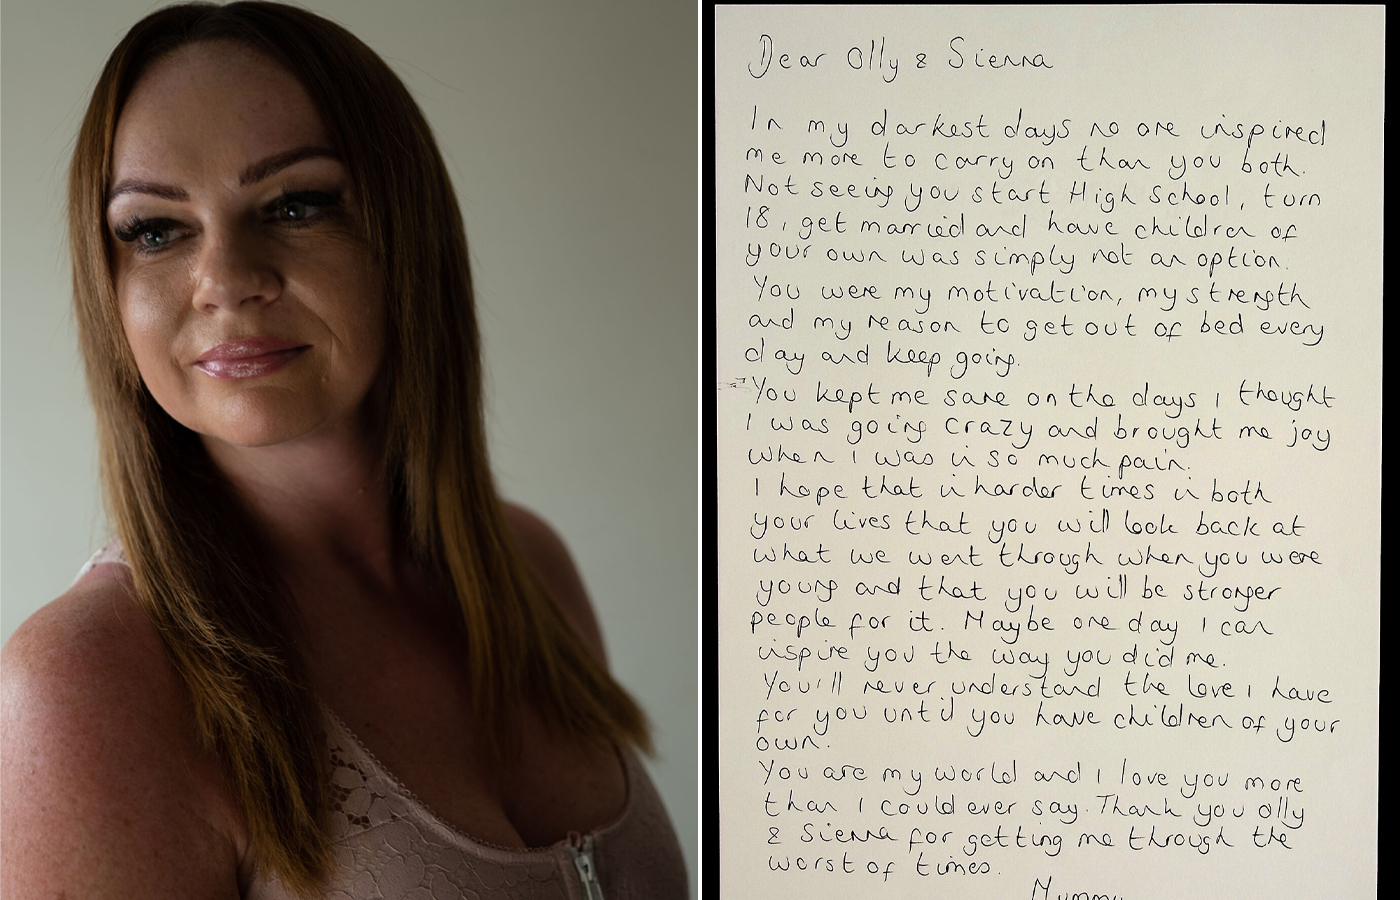 Dear Olly & Sienna
In my darkest days no one inspired
me more to carry on than you both.
Not seeing you start High School, turn
18, get married and have children of
your own was simply not an option.
You were my motivation, my strength
and my reason to get out of bed every
day and keep going.
You kept me sane on the days I thought
I was going crazy and brought me joy
when I was in so much pain.
I hope that in harder times in both
your lives that you will look back at
what we went through when you were
young and that you will be stronger
people for it. Maybe one day I can
inspire you the way you did me.
You'll never understand the love I have
for you until you have children of your
own.
You are my world and I love you more
than I could ever say. Thank you Olly
& Sienna for getting me through the
worst of times.
Mummy